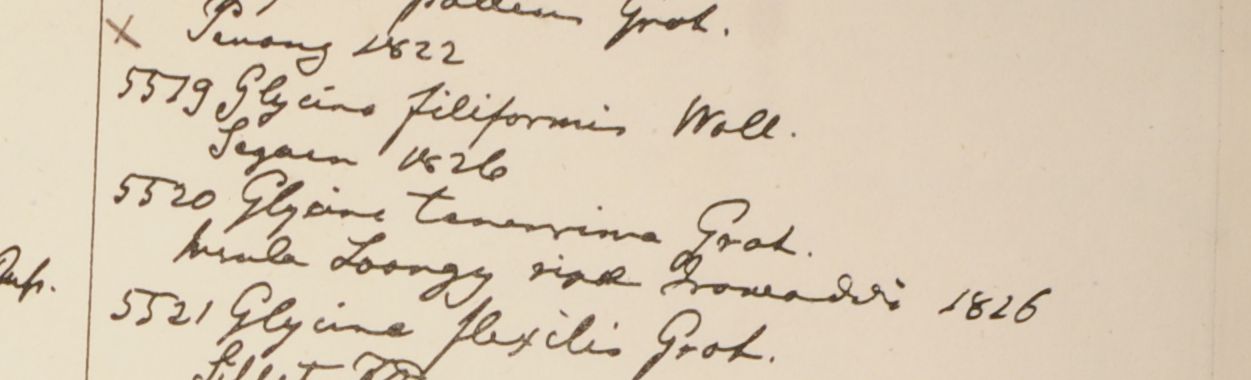 pallens Grah.
× Penang 1822
5519 Glycine filiformis Wall.
Segaen 1826
5520 Glycine tenerrima Grah.
Insula Loongy ripae Irowaddi 1826
Rup.
5521 Glycine flexilis Grah.
Sillet